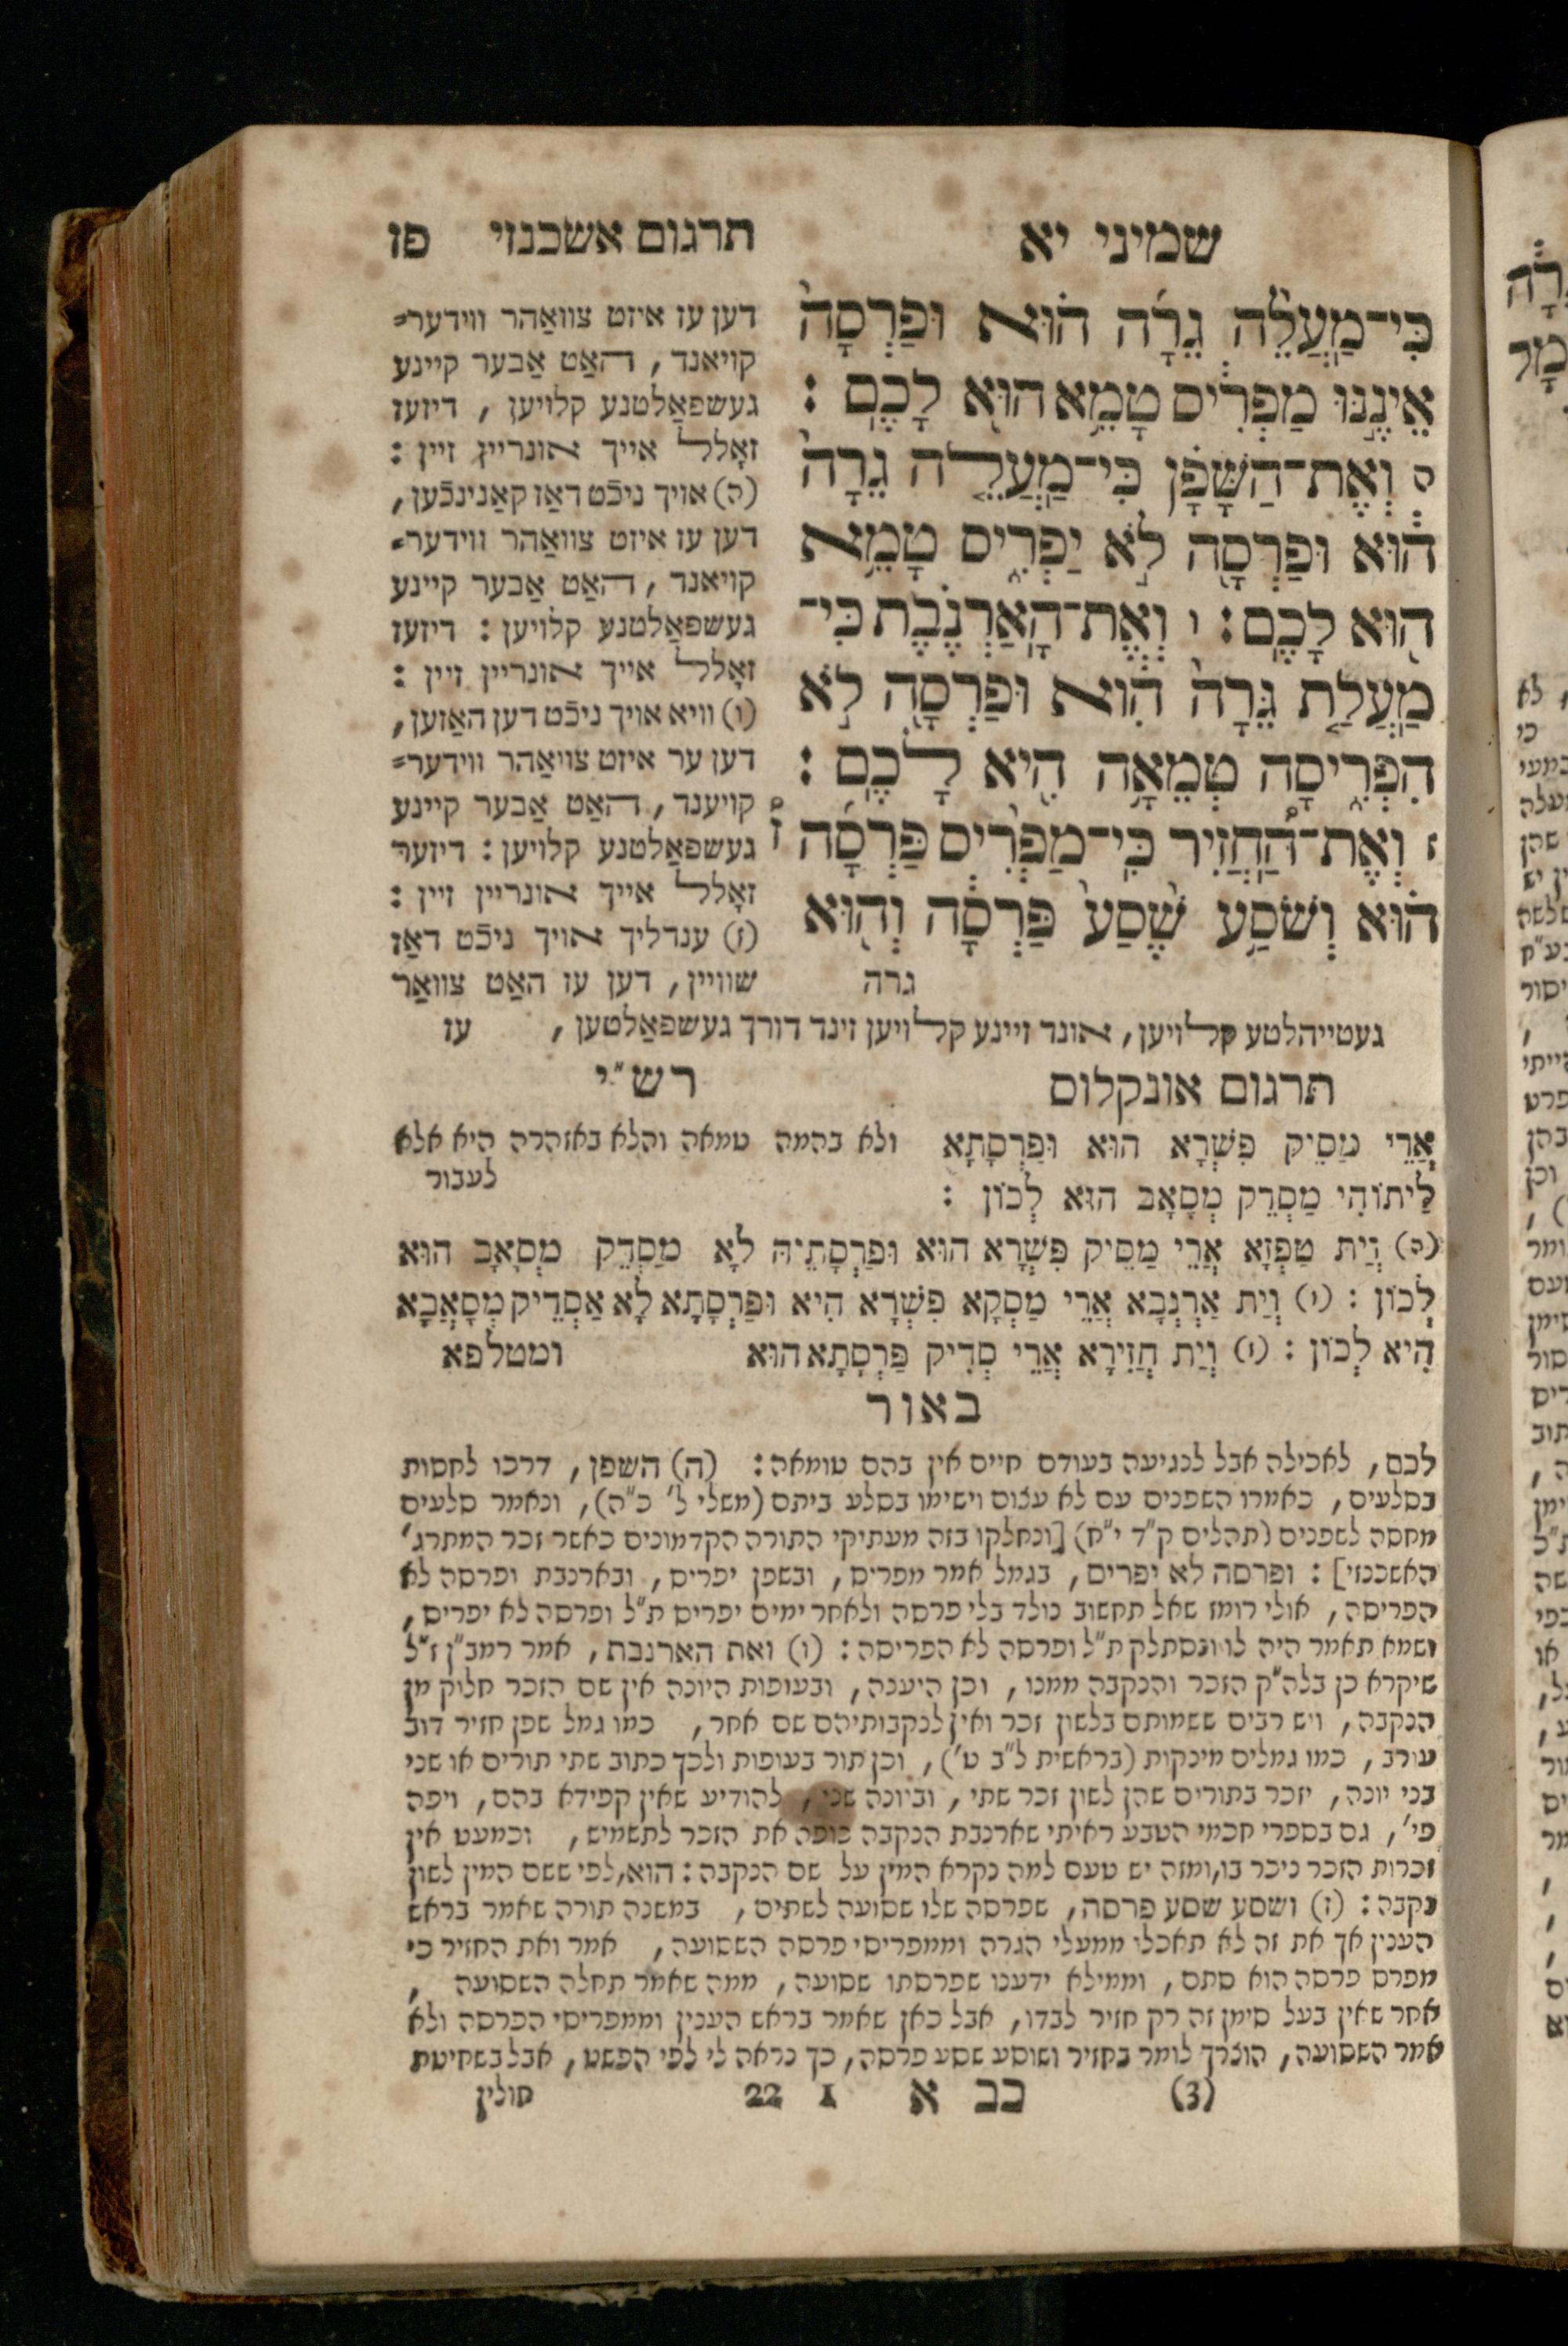 שמיני יא
תרגום אשכנזי פז
כִּי־מַעֲלֵ֨ה גֵרָ֜ה ה֗וּא וּפַרְסָה֙
אֵינֶ֣נּוּ מַפְרִ֔יס טָמֵ֥א ה֖וּא לָכֶֽם :
ה וְאֶת־הַשָּׁפָ֗ן כִּי־מַעֲלֵ֤ה גֵרָה֙
ה֔וּא וּפַרְסָ֖ה לֹ֣א יַפְרִ֑יס טָמֵ֥א
ה֖וּא לָכֶֽם : ו וְאֶת־הָאַרְנֶ֗בֶת כִּי־
מַעֲלַ֤ת גֵּרָה֙ הִ֔וא וּפַרְסָ֖ה לֹ֣א
הִפְרִ֑יסָה טְמֵאָ֥ה הִ֖יא לָכֶֽם :
ז וְאֶת־הַ֠חֲזִיר כִּֽי־מַפְרִ֨יס פַּרְסָ֜ה
ה֗וּא וְשֹׁסַ֥ע שֶׁ֙סַע֙ פַּרְסָ֔ה וְה֖וּא
גרה
דען עז איזט צוואַהר ווידער=
קויאנד, האַט אַבער קיינע
געשפאַלטנע קלויען, דיזעז
זאָלל אייך אונריין זיין :
(ה) אויך ניכֿט דאַז קאַנינכֿען,
דען עז איזט צוואַהר ווידער=
קויאנד, האַט אַבער קיינע
געשפאַלטנע קלויען : דיזעז
זאָלל אייך אונריין זיין :
(ו) וויא אויך ניכֿט דען האַזען,
דען ער איזט צויאַהר ווידער=
קויענד, האַט אַבער קיינע
געשפאַלטנע קלויען : דיזער
זאָלל אייך אונריין זיין :
(ז) ענדליך אויך ניכֿט דאַז
שוויין, דען עז האַט צוואַר
געטייהלטע קלויען, אונד זיינע קלויען זינד דורך געשפאַלטען, עז
תרגום אונקלוס
אֲרֵי מַסֵיק פִּשְׁרָא הוּא וּפַרְסָתָא
לַיתוֹהִי מַסְדֵק מְסָאָב הוּא לְכוֹן :
רש"י
ולא בהמה טמאה והלא באזהרה היא אלא
לעבור
(ה) וְיַת טַפְזָא אֲרֵי מַסֵיק פִּשְׁרָא הוּא וּפַרְסָתֵיהּ לָא מַסְדֵק מְסָאָב הוּא
לְכוֹן : (ו) וְיַת אַרְנְבָא אֲרֵי מַסְקָא פִּשְׁרָא הִיא וּפַרְסָתָא לָא אַסְדֵיק מְסָאֲבָא
הִיא לְכוֹן : (ז) וְיַת חֲזִירָא אֲרֵי סְדִיק פַּרְסָתָא הוּא ומטלפא
באור
לכם, לאכילה אבל לנגיעה בעודם חיים אין בהם טומאה : (ה) השפן, דרכו לחסות
בסלעים, כאמרו השפנים עם לא עצום וישימו בסלע ביתם (משלי ל' כ"ה), ונאמר סלעים
מחסה לשפנים (תהלים ק"ד י"ח) [ונחלקו בזה מעתיקי התורה הקדמונים כאשר זכר המתרג'
האשכנזי] : ופרסה לא יפריס, בגמל אמר מפריס, ובשפן יפריס, ובארנבת ופרסה לא
הפריסה, אולי רומז שאל תחשוב נולד בלי פרסה ולאחר ימים יפריס ת"ל ופרסה לא יפריס,
ושמא תאמר היה לו ונסתלק ת"ל ופרסה לא הפריסה : (ו) ואת הארנבת, אמר רמב"ן ז"ל
שיקרא כן בלה"ק הזכר והנקבה ממנו, וכן היענה, ובעופות היונה אין שם הזכר חלוק מן
הנקבה, ויש רבים ששמותם בלשון זכר ואין לנקבותיהם שם אחר, כמו גמל שפן חזיר דוב
עורב, כמו גמלים מיניקות (בראשית ל"ב ט'), וכן תור בעופות ולכך כתוב שתי תורים או שני
בני יונה, יזכר בתורים שהן לשון זכר שתי, וביונה שני, להודיע שאין קפידא בהם, ויפה
פי', גם בספרי חכמי הטבע ראיתי שארנבת הנקבה כופה את הזכר לתשמיש, וכמעט אין
זכרות הזכר ניכר בו, ומזה יש טעם למה נקרא המין על שם הנקבה : הוא, לפי ששם המין לשון
נקבה : (ז) ושסע שסע פרסה, שפרסה שלו שסועה לשתים, במשנה תורה שאמר בראש
הענין אך את זה לא תאכלו ממעלי הגרה וממפריסי פרסה השסועה, אמר ואת החזיר כי
מפרס פרסה הוא סתם, וממילא ידענו שפרסתו שסועה, ממה שאמר תחלה השסועה,
אחר שאין בעל סימן זה רק חזיר לבדו, אבל כאן שאמר בראש הענין וממפריסי הפרסה ולא
אמר השסועה, הוצרך לומר בחזיר ושוסע שסע פרסה, כך נראה לי לפי הפשט, אבל בשחיטת
(3) כב א 1 22 חולין